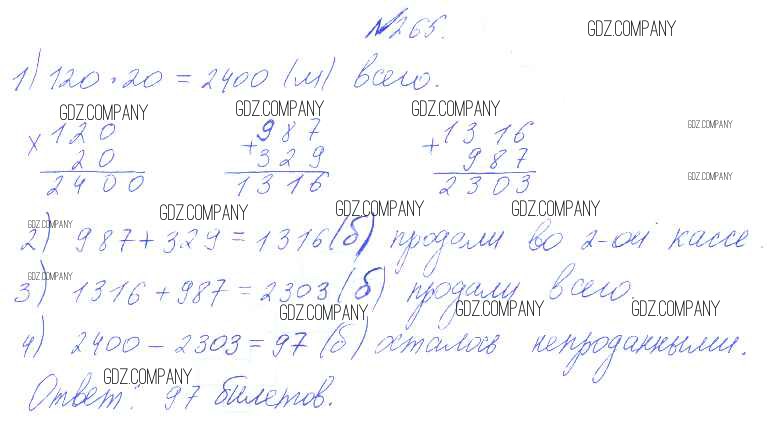 №265. GDZ.COMPANY
1) 120 · 20 = 2400 (м) всего.
GDZ.COMPANY GDZ.COMPANY GDZ.COMPANY
× 120 987 + 1316 GDZ.COMPANY
20 + 329 987
2400 1316 2303 GDZ.COMPANY
GDZ.COMPANY GDZ.COMPANY GDZ.COMPANY GDZ.COMPANY
2) 987 + 329 = 1316 (б) продали во 2-ой кассе.
GDZ.COMPANY
3) 1316 + 987 = 2303 (б) продали всего.
GDZ.COMPANY GDZ.COMPANY GDZ.COMPANY
4) 2400 – 2303 = 97 (б) осталось непроданными.
GDZ.COMPANY
Ответ: 97 билетов.